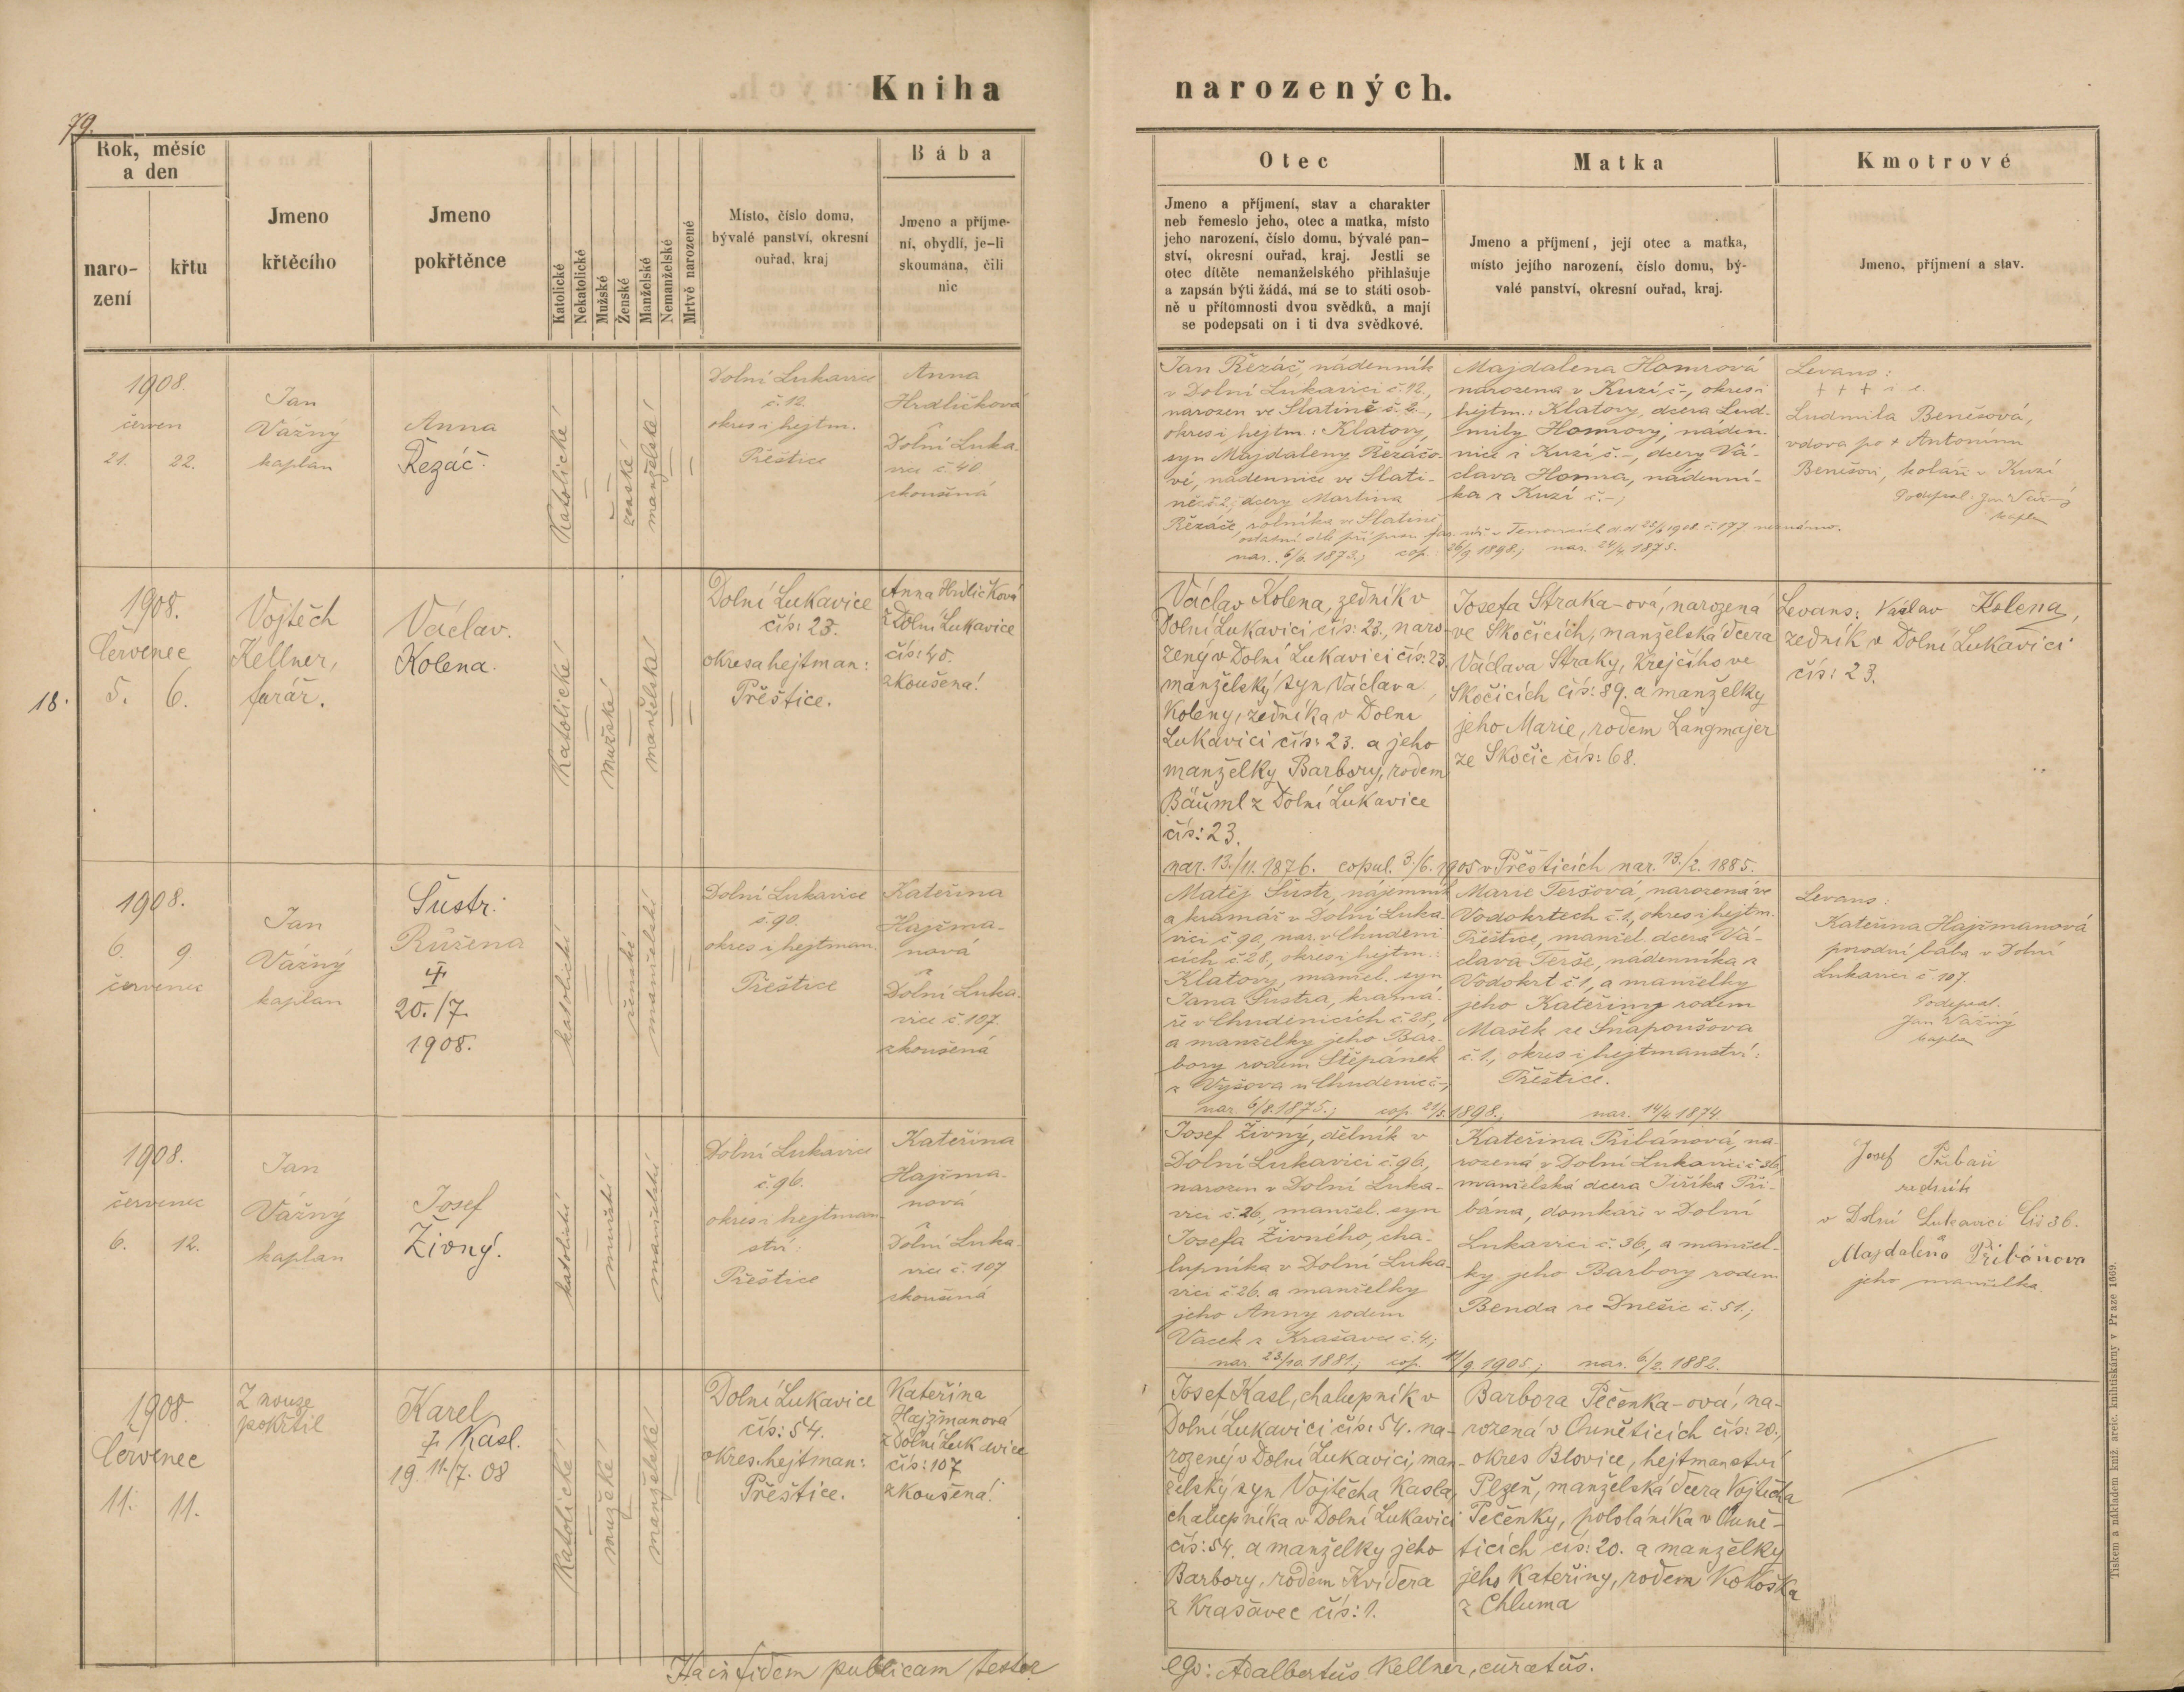 Kniha narozených.
79.
Rok, měsíc
a den
naro-
zení
křtu
Jmeno
křtěcího
Jmeno
pokřtěnce
Katolické
Nekatolické
Mužské
Ženské
Manželské
Nemanželské
Mrtvě narozené
Místo, číslo domu,
bývalé panství, okresní
ouřad, kraj
Bába
Jmeno a příjme-
ní, obydlí, je-li
skoumána, čili
nic
Otec
Jmeno a příjmení, stav a charakter
neb řemeslo jeho, otec a matka, místo
jeho narození, číslo domu, bývalé pan-
ství, okresní ouřad, kraj. Jestli se
otec dítěte nemanželského přihlašuje
a zapsán býti žádá, má se to státi osob-
ně u přítomnosti dvou svědků, a mají
se podepsati on i ti dva svědkové.
Matka
Jmeno a příjmení, její otec a matka,
místo jejího narození, číslo domu, bý-
valé panství, okresní ouřad, kraj.
Kmotrové
Jmeno, příjmení a stav.
1908.
červen
21. 22.
Jan
Vážný
kaplan
Anna
Řezáč.
Katolické
ženské
manželské
Dolní Lukavice
č. 12.
okres i hejtm.
Přeštice
Anna
Hrdličková
Dolní Luka-
vice č 40
zkoušená
Jan Řezáč, nádenník
v Dolní Lukavici č. 12.,
narozen ve Slatině č. 2.,
okres i hejtm.: Klatovy,
syn Majdaleny Řezáčo-
vé, nádennice ve Slati-
ně č. 2, dcery Martina
Řezáče, rolníka ve Slatině
nar. 6/6. 1873.; cop. 26/9 1898.; nar. 24/4. 1875.
Majdalena Homrová
narozena v Kuzí č.-, okres i
hejtm.: Klatovy, dcera Lud-
mily Homrový, náden-
nice z Kuzí č.-, dcery Vá-
clava Homra, nádenní-
ka z Kuzí č.-;
Levans:
+ + + i. e.
Ludmila Benešová,
vdova po + Antonínu
Benešovi, koláři v Kuzí
Podepsal: Jan Vážný
kaplan
18.
1908.
Červenec
5. 6.
Vojtěch
Kellner,
farář.
Václav.
Kolena.
Katolické
mužské
manželské
Dolní Lukavice
čís: 23.
okres a hejtman:
Přeštice.
Anna Hrdličková
z Dolní Lukavice
čís: 40.
zkoušena!
Václav Kolena, zedník v
Dolní Lukavici čís: 23., naro-
zený v Dolní Lukavici čís: 23.
manželský syn Václava
Koleny, zedníka v Dolní
Lukavici čís: 23. a jeho
manželky Barbory, rodem
Bäuml z Dolní Lukavice
čís: 23.
nar. 13./11. 1876. copul. 3./6. 1905 v Přešticích nar. 13./2. 1885.
Josefa Straka-ová, narozená
ve Skočicích, manželská dcera
Václava Straky, krejčího ve
Skočicích čís: 89. a manželky
jeho Marie, rodem Langmajer
ze Skočic čís: 68.
Levans: Václav Kolena,
zedník v Dolní Lukavici
čís: 23.
1908.
6. 9
červenec
Jan
Vážný
kaplan
Šustr.
Růžena
‡
20./7.
1908.
katolické
ženské
manželské
Dolní Lukavice
č. 90.
okres i hejtman.
Přeštice
Kateřina
Hajžma-
nová
Dolní Luka-
vice č. 107.
zkoušená
Matěj Šustr, nájemník
a kramář v Dolní Luka-
vici č 90, nar. v Chudeni-
cích č. 28, okres i hejtm.:
Klatovy, manžel. syn
Jana Šustra, kramá-
ře v Chudenicích č. 28.,
a manželky jeho Bar-
bory rodem Štěpánek
z Vyšova u Chudenic č.-,
nar. 6/8. 1875.; cop. 21/5. 1898.; nar. 14/4 1874.
Marie Teršová, narozená ve
Vodokrtech č. 1, okres i hejtm.
Přeštice, manžel. dcera Vá-
clava Terše, nádenníka z
Vodokrt č 1, a manželky
jeho Kateřiny rodem
Mašek ze Šňapoušova
č. 1., okres i hejtmanství:
Přeštice.
Levans:
Kateřina Hajžmanová
porodní bába v Dolní
Lukavici č. 107.
Podepsal.
Jan Vážný
kaplan
1908.
červenec
6. 12.
Jan
Vážný
kaplan
Josef
Živný.
katolické
mužské
manželské
Dolní Lukavice
č. 96.
okres i hejtman-
ství:
Přeštice
Kateřina
Hajžma-
nová
Dolní Luka-
vice č. 107
zkoušená
Josef Živný, dělník v
Dolní Lukavici č. 96,
narozen v Dolní Luka-
vici č. 26, manžel. syn
Josefa Živného, cha-
lupníka v Dolní Luka-
vici č. 26. a manželky
jeho Anny rodem
Vacek z Krašavce č. 4.;
nar. 23/10. 1881.; cop. 11/9. 1905.; nar. 6/2. 1882.
Kateřina Přibáňová, na-
rozená v Dolní Lukavici č 36,
manželská dcera Jiříka Při-
báňa, domkaře v Dolní
Lukavici č. 36., a manžel-
ky jeho Barbory rodem
Benda ze Dnešic č. 51.;
Josef Přibáň
zedník
v Dolní Lukavici čís 36.
Majdalena Přibáňova
jeho manželka.
1908.
Červenec
11. 11.
Z nouze
pokřtil
Karel
‡ Kasl.
19 11./7. 08
Katolické
mužské
manželské
Dolní Lukavice
čís: 54.
okres. hejtman:
Přeštice.
Kateřina
Hajžmanová
z Dolní Lukavice
čís: 107
zkoušená!
Josef Kasl, chalupník v
Dolní Lukavici čís: 54. na-
rozený v Dolní Lukavici, man-
želský syn Vojtěcha Kasla,
chalupníka v Dolní Lukavici
čís: 54. a manželky jeho
Barbory, rodem Kvidera
z Krašavec čís: 1.
Barbora Pečenka-ová, na-
rozená v Ouněticích čís: 20.,
okres Blovice, hejtmanství
Plzeň, manželská dcera Vojtěcha
Pečenky, pololáníka v Ouně-
ticích čís: 20. a manželky
jeho Kateřiny, rodem Kokoška
z Chluma
Hac in fidem publicam testor
ego: Adalbertus Kellner, curatus.
Tiskem a nákladem kníž. arcib. knihtiskárny v Praze 1869.